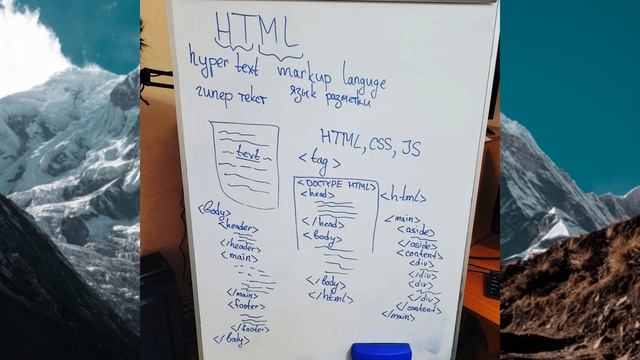 HTML
hyper text markup languge
гипер текст язык разметки
text
HTML, CSS, JS
<tag>
<DOCTYPE HTML>
<head>
</head>
<body>
</body>
</html>
<html>
<body>
<header>
</header>
<main>
</main>
<footer>
</footer>
</body>
<main>
<aside>
</aside>
<content>
<div>
</div>
<div>
</div>
</content>
</main>